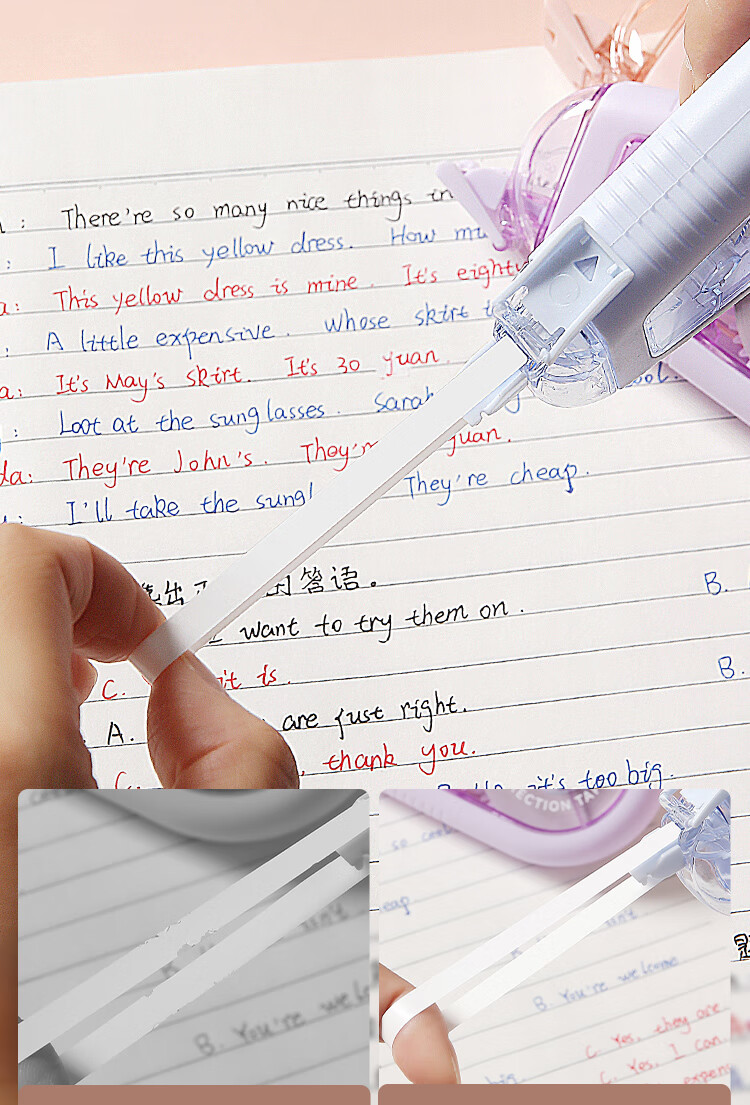 : There're so many nice things in
: I like this yellow dress. How mu
a: This yellow dress is mine. It's eighty
: A little expensive. Whose skirt
a: It's May's skirt. It's 30 yuan.
: Loot at the sunglasses. Sarah
da: They're John's. They're yuan.
: I'll take the sungl They're cheap.
出 的答语。
B.
I want to try them on.
C. it is.
B.
A. are just right.
C. , thank you.
it's too big.
B. You're wel
ECTION TA
so
eap
B. You're welcome
C. Yes, they are
C. Yes, I can.
big.
expen